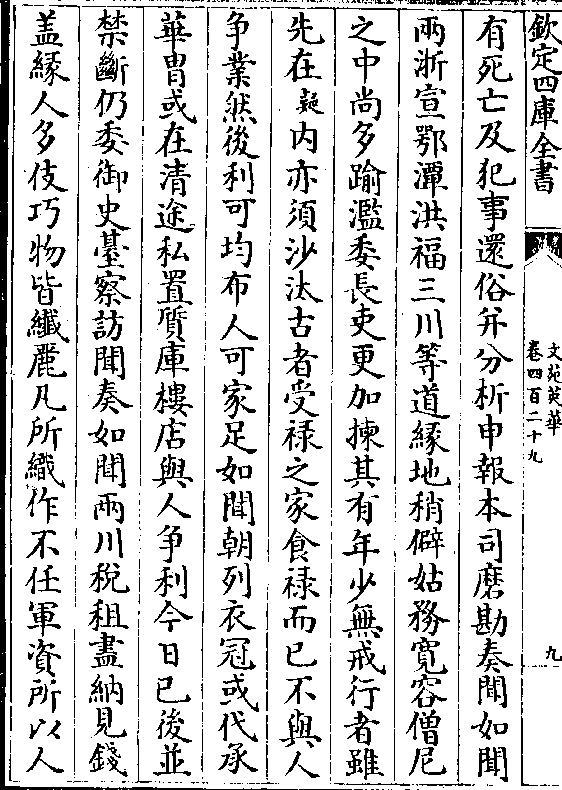 欽定四庫全書
文苑英華
卷四百二十九
九
有死亡及犯事還俗并分析申報本司磨勘奏聞如聞
兩浙宣鄂潭洪福三川等道緣地稍僻姑務寛容僧尼
之中尚多踰濫委長吏更加揀其有年少無戒行者雖
先在疑内亦須沙汰古者受禄之家食禄而已不與人
争業然後利可均布人可家足如聞朝列衣冠或代承
華胄或在清途私置質庫樓店與人争利今日已後並
禁斷仍委御史臺察訪聞奏如聞兩川稅租盡納見錢
盖緣人多伎巧物皆纖麗凡所織作不任軍資所以人